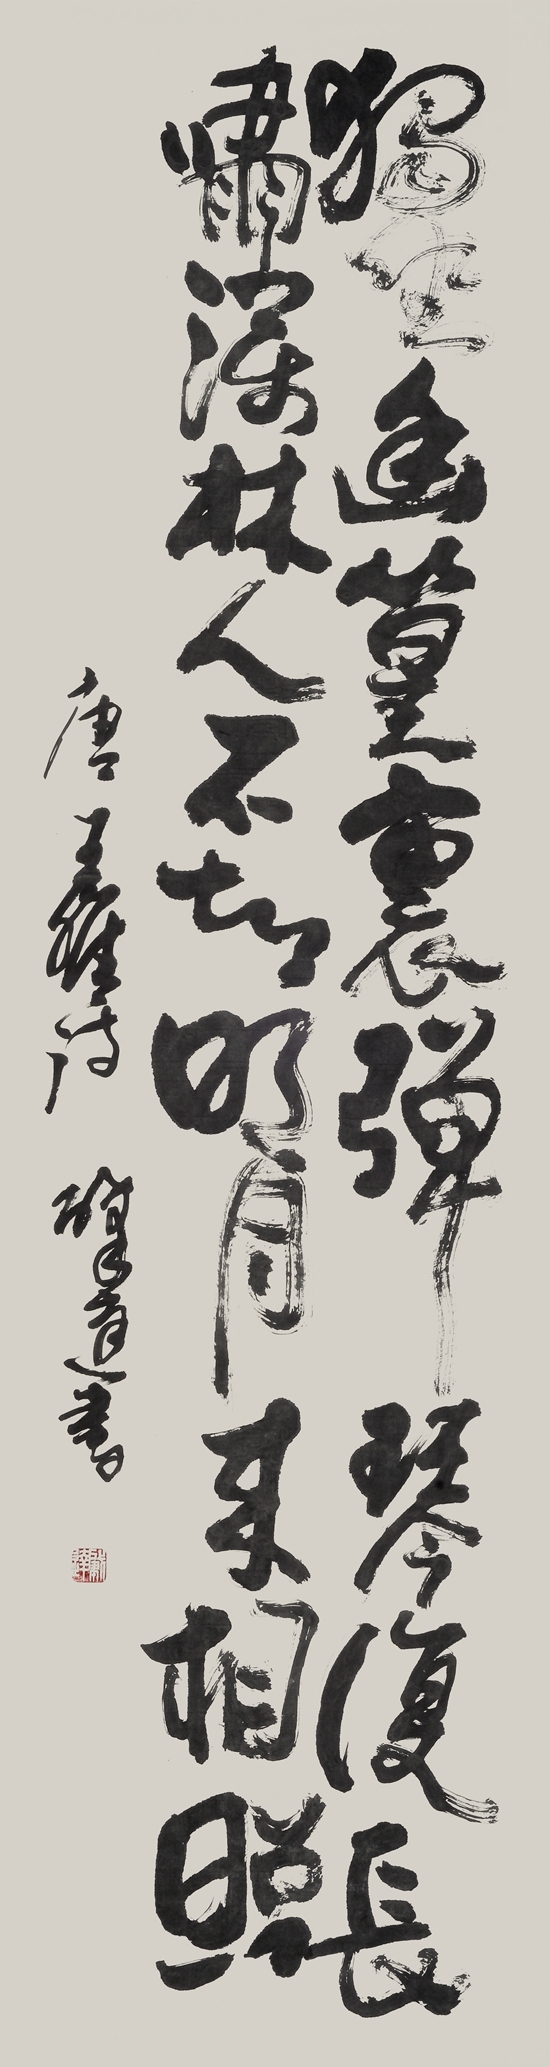 獨坐幽篁裏弹琴復長
嘯深林人不知明月来相照
唐王維诗 建書